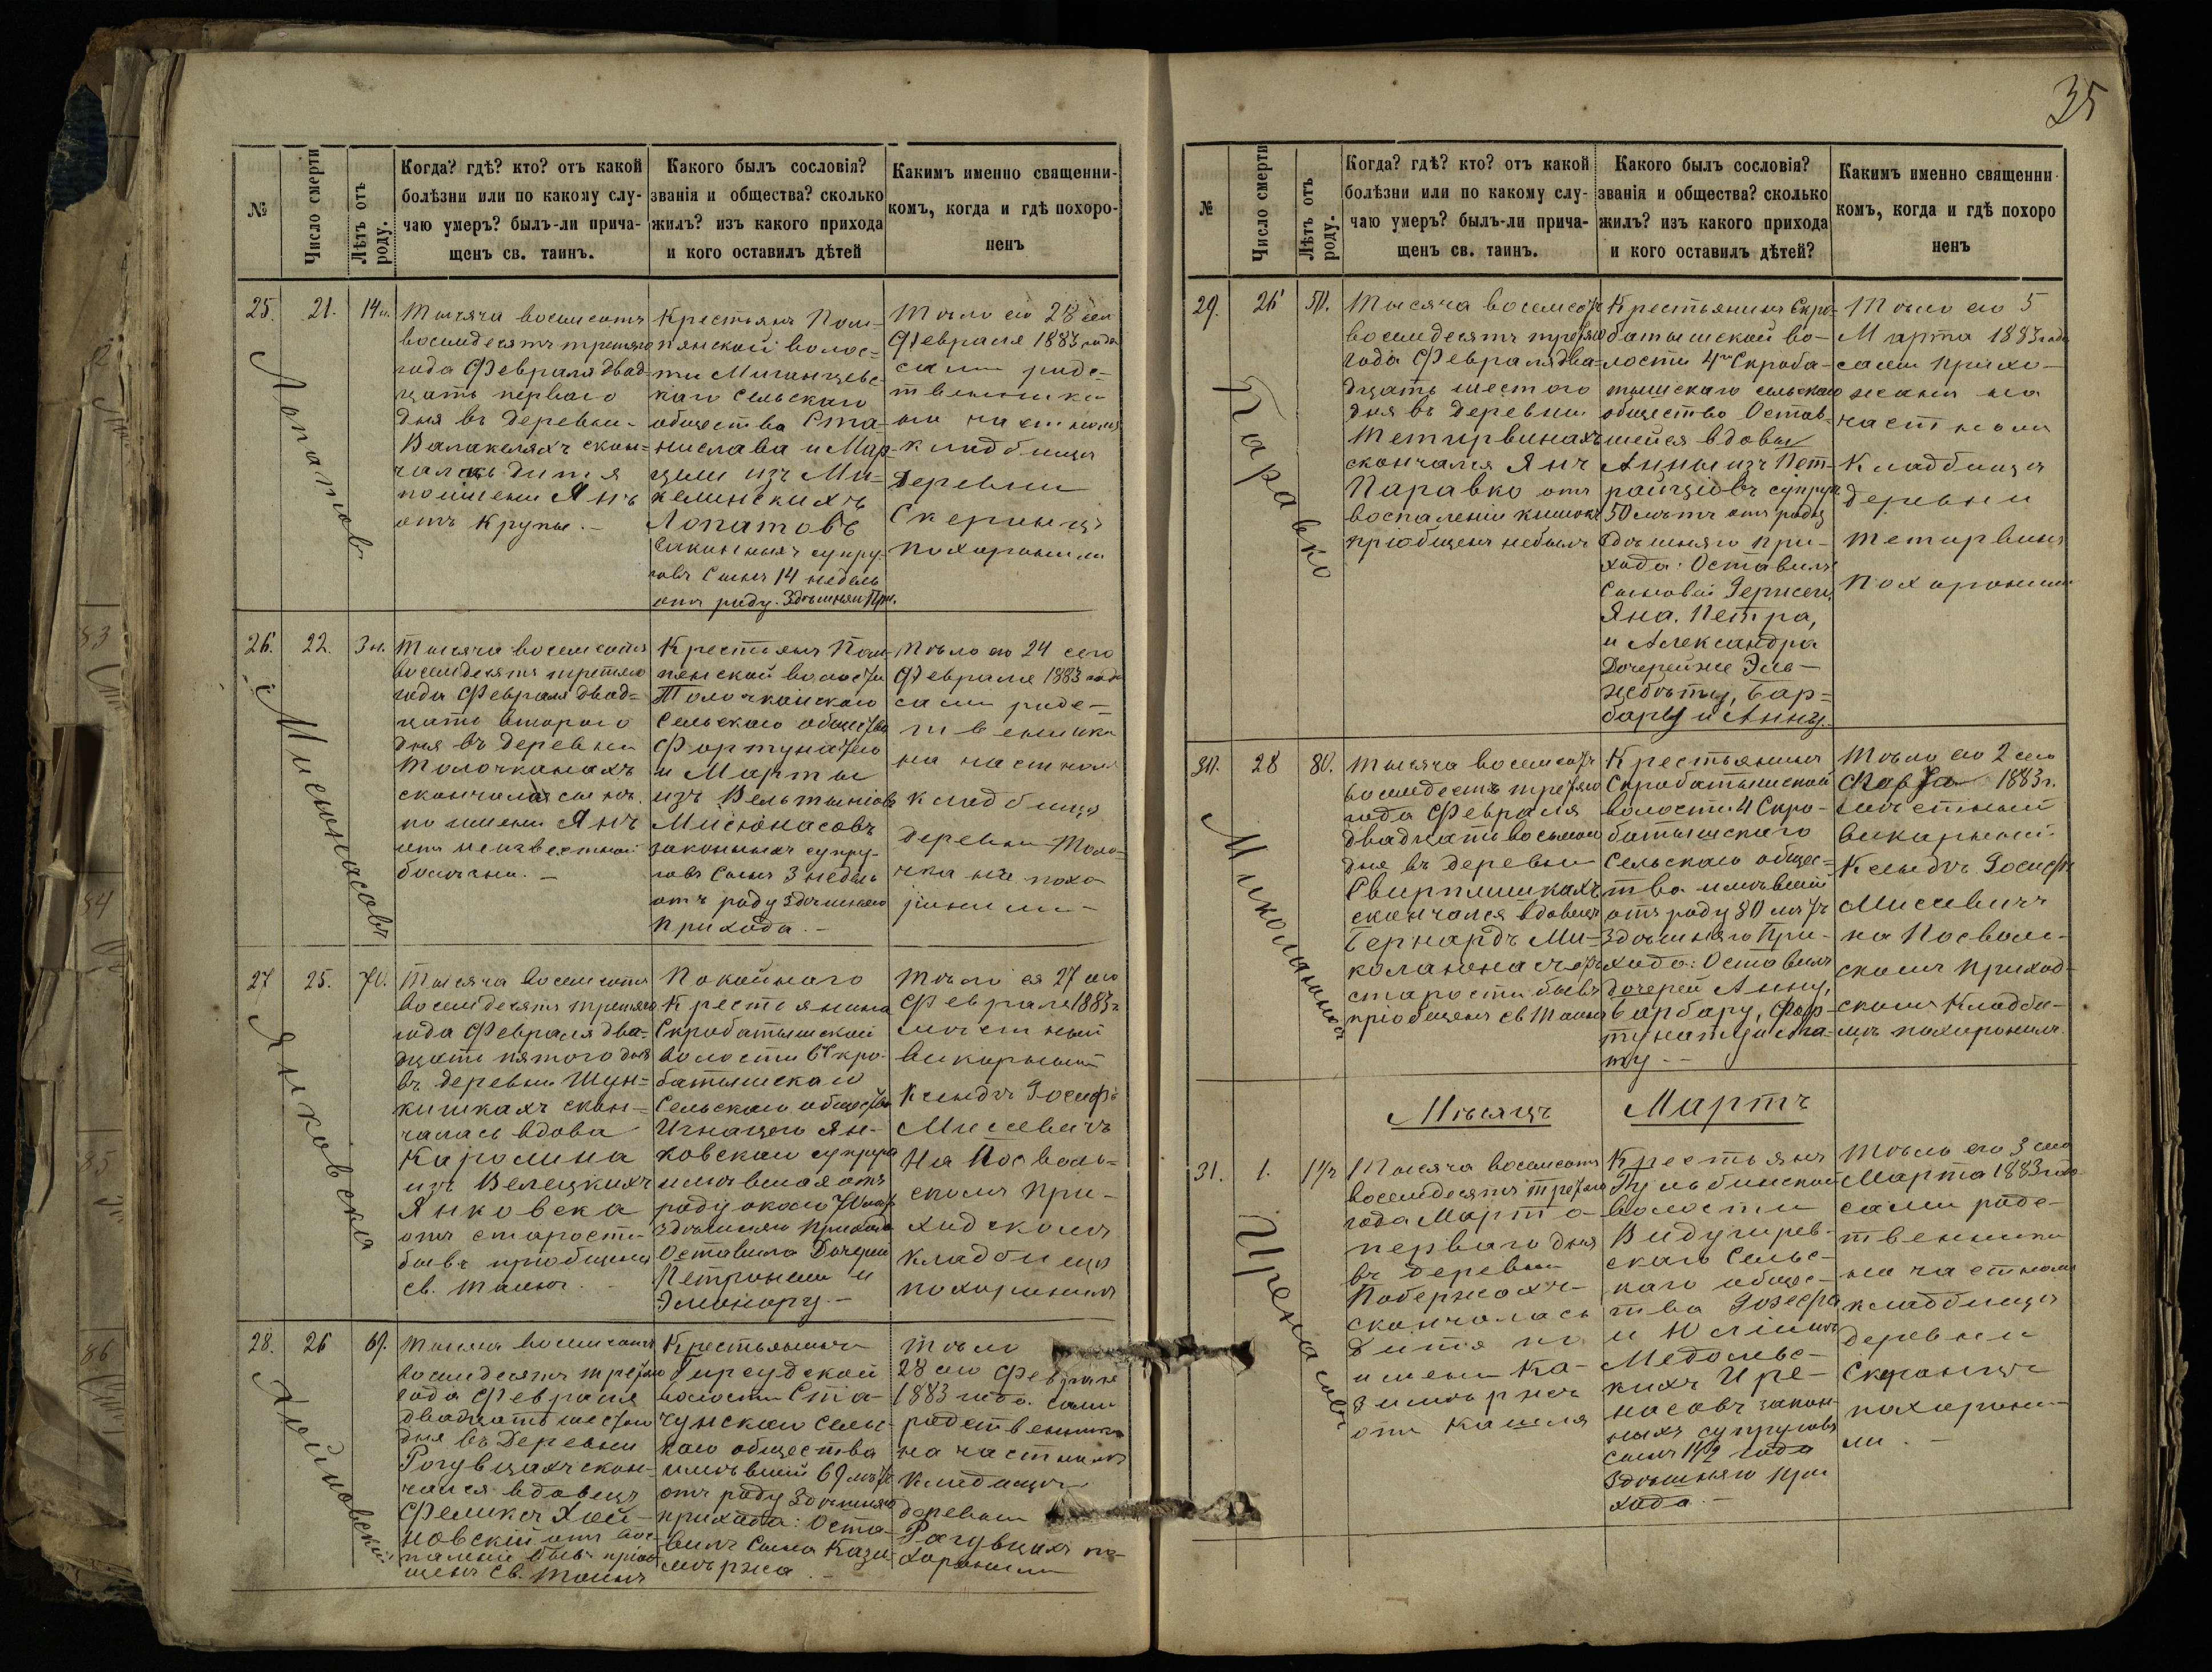 35
№
Число смерти
Лѣтъ отъ роду.
Когда? гдѣ? кто? отъ какой
болѣзни или по какому слу-
чаю умеръ? былъ-ли прича-
щенъ св. таинъ.
Какого былъ сословія?
званія и общества? сколько
жилъ? изъ какого прихода
и кого оставилъ дѣтей
Какимъ именно священни-
комъ, когда и гдѣ похоро-
ненъ
25.
21.
14 н.
Лопатовъ
Тысяча восемсотъ
восемдесятъ третяго
года Февраля двад-
цать перваго
дня въ деревни
Валакеляхъ скон-
чалась дитя
по имени Янъ
отъ Крупы. -
Крестьянъ Пом-
пянской волос-
ти
каго Сельскаго
общества Ста-
нислава и Мар-
цели изъ Ми-
келинскихъ
Лопатовъ
законныхъ супру-
говъ Сынъ 14 недель
отъ роду. Здѣшняго При.
Тѣло его 28 сего
Февраля 1883 года
сами родс-
твенники
на частномъ
кладбищи
деревни
похоронили
26.
22.
3 н.
Мисюнасовъ
Тысяча восемсотъ
восемдесятъ третяго
года Февраля двад-
цать втораго
дня въ деревни
Толочканахъ
скончался сынъ
по имени Янъ
отъ неизвестной
болезни. -
Крестьянъ Пом-
пянской волости
Толочканскаго
Сельскаго общества
Фортунатего
и Марты
изъ
Мисюнасовъ
законныхъ супру-
говъ Сынъ 3 недель
отъ роду здѣшняго
Прихода. -
Тѣло его 24 сего
Февраля 1883 года
сами родс-
твенники
на частномъ
кладбищи
деревни Толо-
чканы похо-
ронили -
27
25.
70.
Янковска
Тысяча восемсотъ
восемдесятъ третяго
года Февраля два-
дцать пятого дня
въ деревни Шун-
кишкахъ скон-
чалась вдова
Каролина
изъ Велецкихъ
Янковска
отъ старости
бывъ приобщена
св. Таинъ. -
Покойнаго
Крестьянина
Скробатышской
волости Скро-
батышскаго
Сельскаго общества
Игнацего Ян-
ковскаго супруга
имѣвшая отъ
роду около 70 лѣтъ
здѣшняго прихода
Оставила Дочерей
Петронели и
Элионору. -
Тѣло ея 27 сего
Февраля 1883 г.
мѣстный
викарный
Ксендзъ Іосифъ
Мисевичъ
На Посволь-
скомъ При-
ходскомъ
Кладбищи
похоронилъ
28.
26
69.
Хойновскій
Тысяча восемсотъ
восемдесятъ третяго
года Февраля
двадцать шестого
дня въ Деревни
Рогувцахъ скон-
чался вдовецъ
Феликсъ Хой-
новскій отъ вос-
паленіи бывъ пріоб-
щенъ Св. Таинъ
Крестьянинъ
Гирсудской
волости Ста-
чунскаго Сель-
каго общества
имѣвшій 69 лѣтъ
отъ роду Здѣшняго
прихода: Оста-
вилъ Сына Кази-
мѣржа. -
Тѣло
28 сего Февраля
1883 года. сами
родственники
на частномъ
Кладбищи
деревни
Рагувцахъ по-
хоронили
№
Число смерти
Лѣтъ отъ роду.
Когда? гдѣ? кто? отъ какой
болѣзни или по какому слу-
чаю умеръ? былъ-ли прича-
щенъ св. таинъ.
Какого былъ сословія?
званія и общества? сколько
жилъ? изъ какого прихода
и кого оставилъ дѣтей?
Какимъ именно священни-
комъ, когда и гдѣ похоро
ненъ
29.
26
50.
Паравко
Тысяча восемсотъ
восемдесятъ третяго
года Февраля два-
дцать шестого
дня въ деревни
Тетирвинахъ
скончался Янъ
Паравко отъ
воспаленіи кишокъ
пріобщенъ небылъ
Крестьянинъ Скро-
батышской во-
лости 4го Скроба-
тышскаго сельскаго
общество Остав-
шейся вдовы
Анны изъ Пет-
райціовъ супругъ
50 лѣтъ отъ роду
Здѣшняго при-
хода: Оставилъ
Сыновей
Яна, Петра,
и Александра
Дочерей же Эль-
жбѣту, Бар-
бару и Анну.
Тѣло его 5
Марта 1883 года
сами прихо-
жани на
частномъ
Кладбищи
деревни
Тетирвины
Похоронили
30.
28
80.
Миколаюнасъ
Тысяча восемсотъ
восемдесятъ третяго
года Февраля
двадцать восьмого
дня въ деревни
Свирплишкахъ
скончался вдовецъ
Бернардъ Ми-
колаюнасъ отъ
старости бывъ
пріобщенъ св Таинъ
Крестьянинъ
Скробатышской
волости 4 Скро-
батышскаго
Сельскаго общес-
тва имѣвшій
отъ роду 80 лѣтъ
Здѣшняго При-
хода: Оставилъ
дочерей Анну,
Барбару, Фор-
тунату и Ага-
ту --
Тѣло его 2 сего
Марта 1883 г.
мѣстный
викарный
Ксендзъ Іосифъ
Мисевичъ
на Посволь-
скомъ приход-
скомъ Кладби-
щѣ похоронилъ.
Мѣсяцъ Мартъ
31.
1.
1½
Иренасовъ
Тысяча восемсотъ
восемдесятъ третяго
года Марта
перваго дня
въ деревни
Побержахъ
скончалась
дитя по
имени Ка-
зимѣржъ
отъ кашля
Крестьянъ
Гульбинской
волости
скаго Сельс-
каго общес-
тва Іозефа
и Юліи изъ
Медолевс-
кихъ Ире-
насовъ закон-
ныхъ супруговъ
сынъ 1½ года
Здѣшняго при
хода. -
Тѣло его 3 сего
Марта 1883 года
сами родс-
твенники
на частномъ
кладбищи
деревни
похорони-
ли. -
83
84
85
86